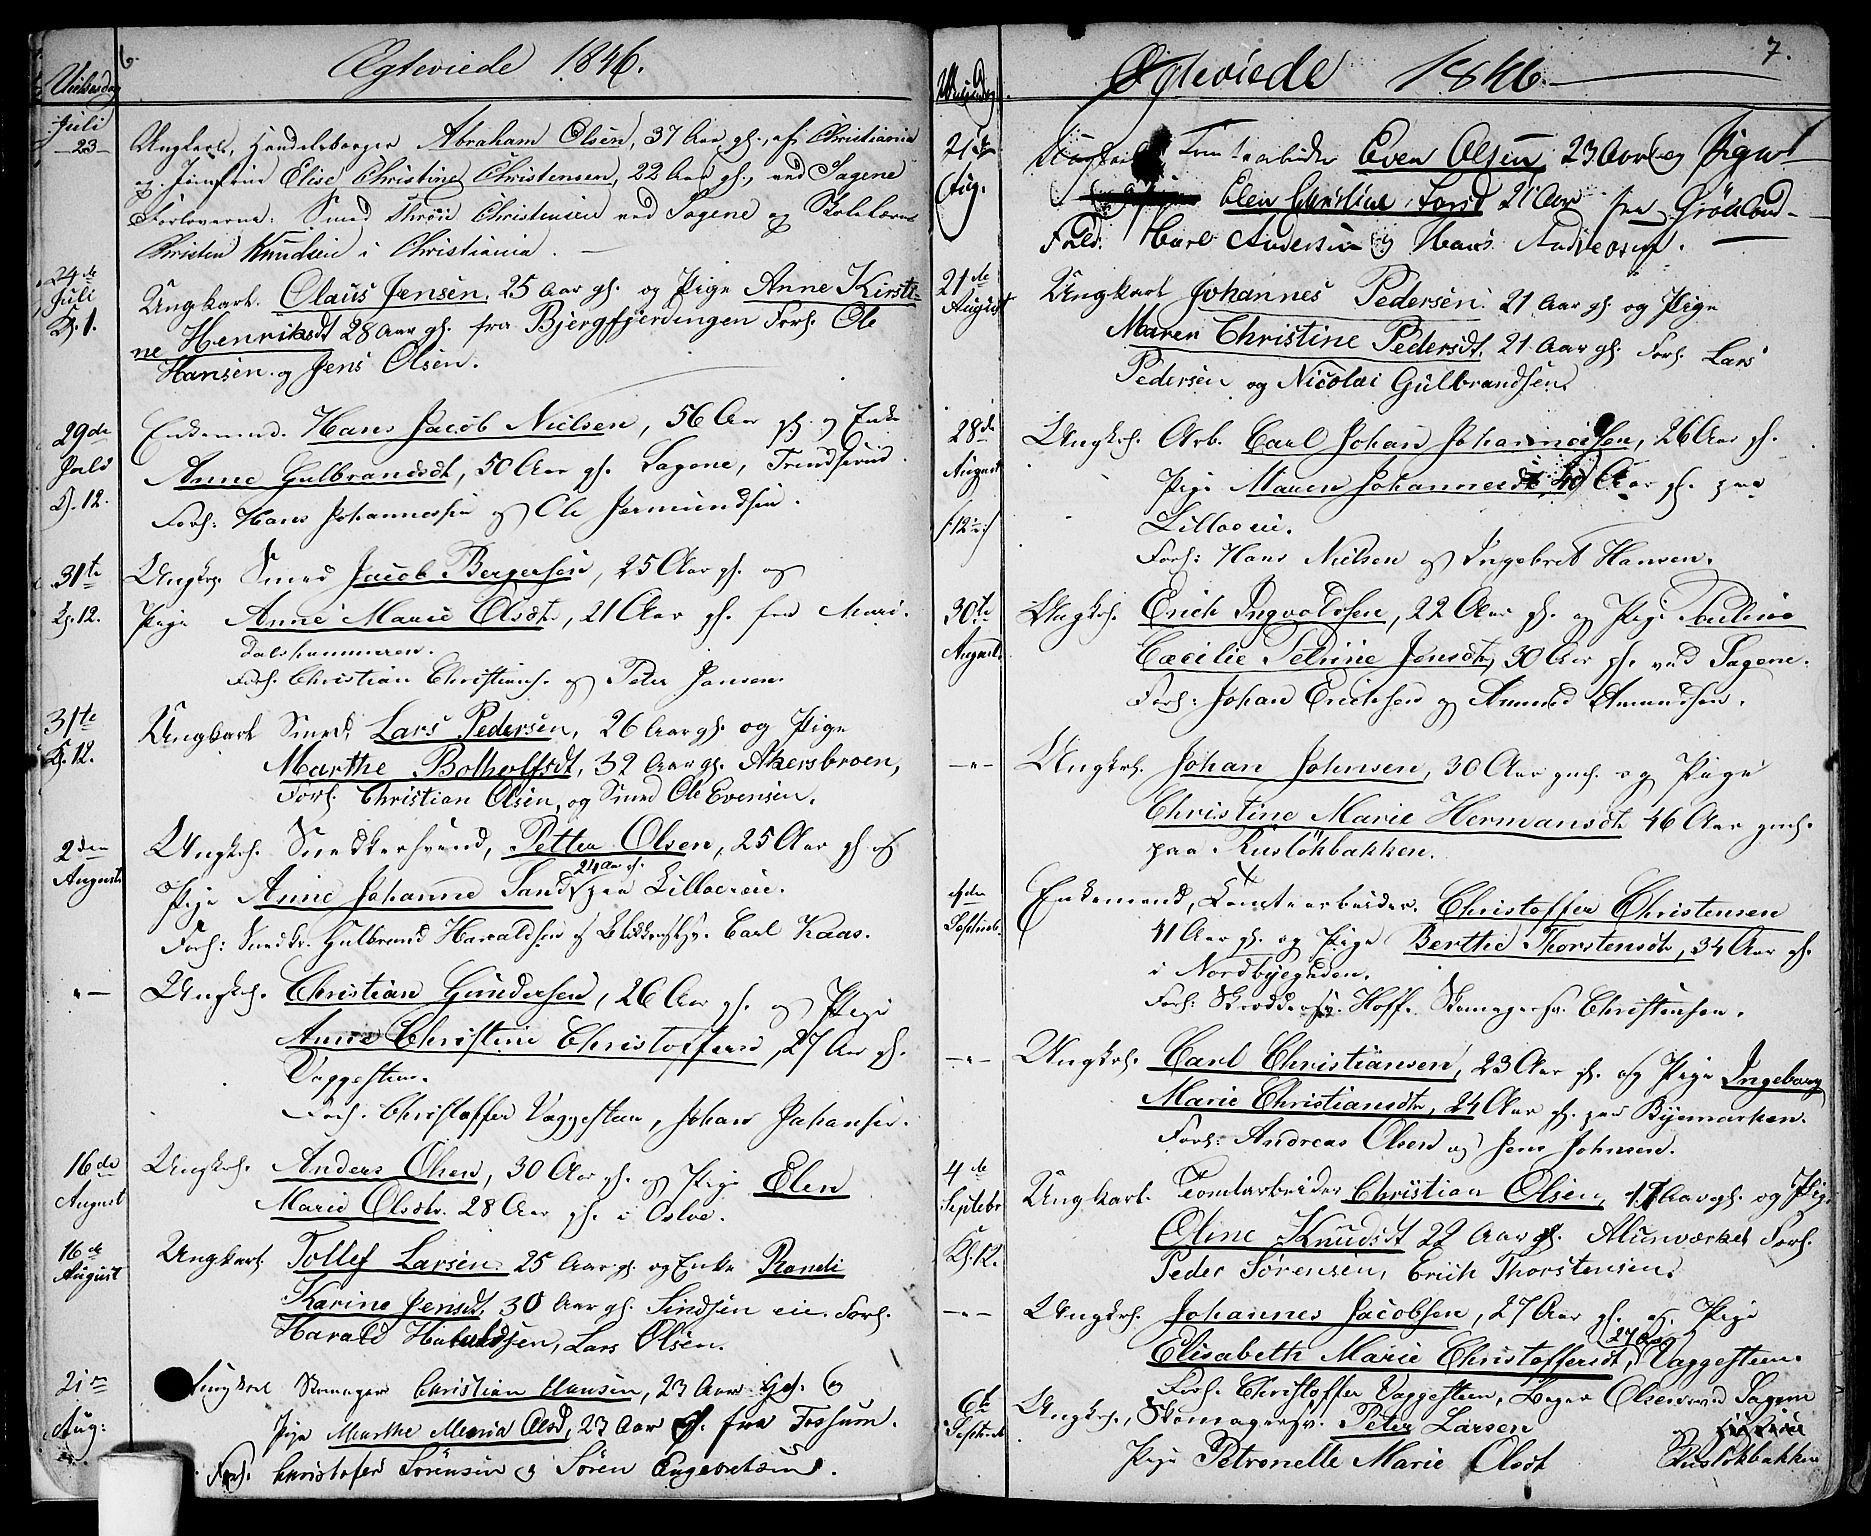 6.
Ægteviede 1846.
Vielsesdag
Juli
23
Ungkarl, Handelsborger Abraham Olsen, 37 Aar gl., af Christiania
og Jomfrue Elise Christine Christensen, 22 Aar gl., ved Sagene
Forloverne: Smed Christensen ved Sagene og
Christen Knudsen i Christiania.
24de
Juli
Kl. 1.
Ungkarl. Claus Jensen, 25 Aar gl. og Pige Anne Kirsti-
ne Henriksdt 28 Aar gl. fra Bjergfjerdingen Forl. Ole
Hansen og Jens Olsen.
29de
Juli
Kl. 12.
Enkemand. Hans Jacob Nielsen, 56 Aar gl. og Enke
Anne Gulbrandsdt, 50 Aar gl. Sagene,
Forl: Hans Johannessen og Ole Jermundsen.
31te
Kl. 12.
Ungkrl. Smed Jacob Bergersen, 25 Aar gl. og
Pige Anne Marie Olsdt, 21 Aar gl. fra Mari-
dalshammeren.
Forl. Christian Christians. og Peter Jansen.
31te
Kl. 12.
Ungkarl Smed, Lars Pedersen, 26 Aar gl. og Pige
Marthe Botholfsdt, 32 Aar gl. Akersbroen,
Forl. Christian Olsen, og Smed Ole Evensen.
2den
August
Ungkrl. Snedkersvend, Petter Olsen, 25 Aar gl. og
24 Aar gl.
Pige Anne Johanne Sand paa Lilloeie.
Forl: Snedkr. Gulbrand Haraldsen og Carl Kaas.
-"-
Ungkrl. Christian Gundersen, 26 Aar gl. og Pige
Anne Christine Christoffersd, 27 Aar gl.
Vaggesteen.
Forl. Christoffer Vaggesteen, Johan Johansen.
16de
August
Ungkrl. Anders Olsen, 30 Aar gl. og Pige Elen
Marie Olsdtr. 28 Aar gl. i Oslo.
16de
August
Ungkarl. Tollef Larsen. 25 Aar gl. og Enke Randi
Karine Jensdt, 30 Aar gl. eie. Forl.
Harald Haraldsen, Lars Olsen.
21de
Aug:
Ungkarl Skomager Christian Hansen, 23 Aar gl. og
Pige Marthe Maria Olsd, 23 Aar gl. fra Fossum.
Forl. Christofer Sörensen og Sören Engebretsen.
7.
Ægteviede 1846.
Vielsesdag
21de
Aug.
Ungkarl Tomtearbeider Even Olsen, 23 Aar og Pigen
Elen Christine Larsd 21 Aar fra Grölland
Forl. Karl Andersen og Hans Andreasen.
21de
August
Ungkarl Johannes Pedersen 21 Aar gl. og Pige
Maren Christine Pedersdt, 21 Aar gl. Forl. Lars
Pedersen og Nicolai Gulbrandsen.
28de
August
/:12:/
Ungkrl. Arb. Carl Johan Johannessen, 26 Aar gl.
Pige Maren Johannesdt 40 Aar gl. paa
Lilloeie.
Forl: Hans Nielsen og Ingebret Hansen.
30te
August.
Ungkrl. Erich Ingvaldsen, 22 Aar gl. og Pige Pauline
Cæcilie Petrine Jensdt, 30 Aar gl. ved Sagene.
Forl: Johan Erichsen og Amund Amundsen.
-"-
Ungkrl. Johan Johnsen, 30 Aar gml. og Pige
Christine Marie Hermansdt 46 Aar gml.
paa Ruslökbakken.
4de
Septemb.
Enkemand, Tomtearbeider. Christoffer Christensen
41 Aar gl. og Pige Berthe Thorstensdt, 34 Aar gl.
i Nordbyegaden.
Forl: Skreddersv. Hoff. Skomagersv. Christensen.
-"-
Ungkrl. Carl Christiansen, 23 Aar gl. og Pige Ingeborg
Marie Christiansdtr, 24 Aar gl. paa Bymarken.
Forl: Andreas Olsen og Jens Johnsen.
4de
Septebr
Kl. 12.
Ungkarl. Tomtarbeider Christian Olsen, Aar gl. og Pige
Oline Knudsdt 22 Aar gl. Alunværket Forl.
Peder Sørensen, Erich Thorstensen.
-"-
Ungkrl. Johannes Jacobsen, 27 Aar gl. og Pige
27 Aar
Elisabeth Marie Christoffersdt, Vaggesteen.
Forl. Christoffer Vaggesteen, Olsen ved Sagene
6te
Septb.
Ungkrl., Skomagersv. Peter Larsen
Pige Petronelle Marie Olsdt Ruslökbakken